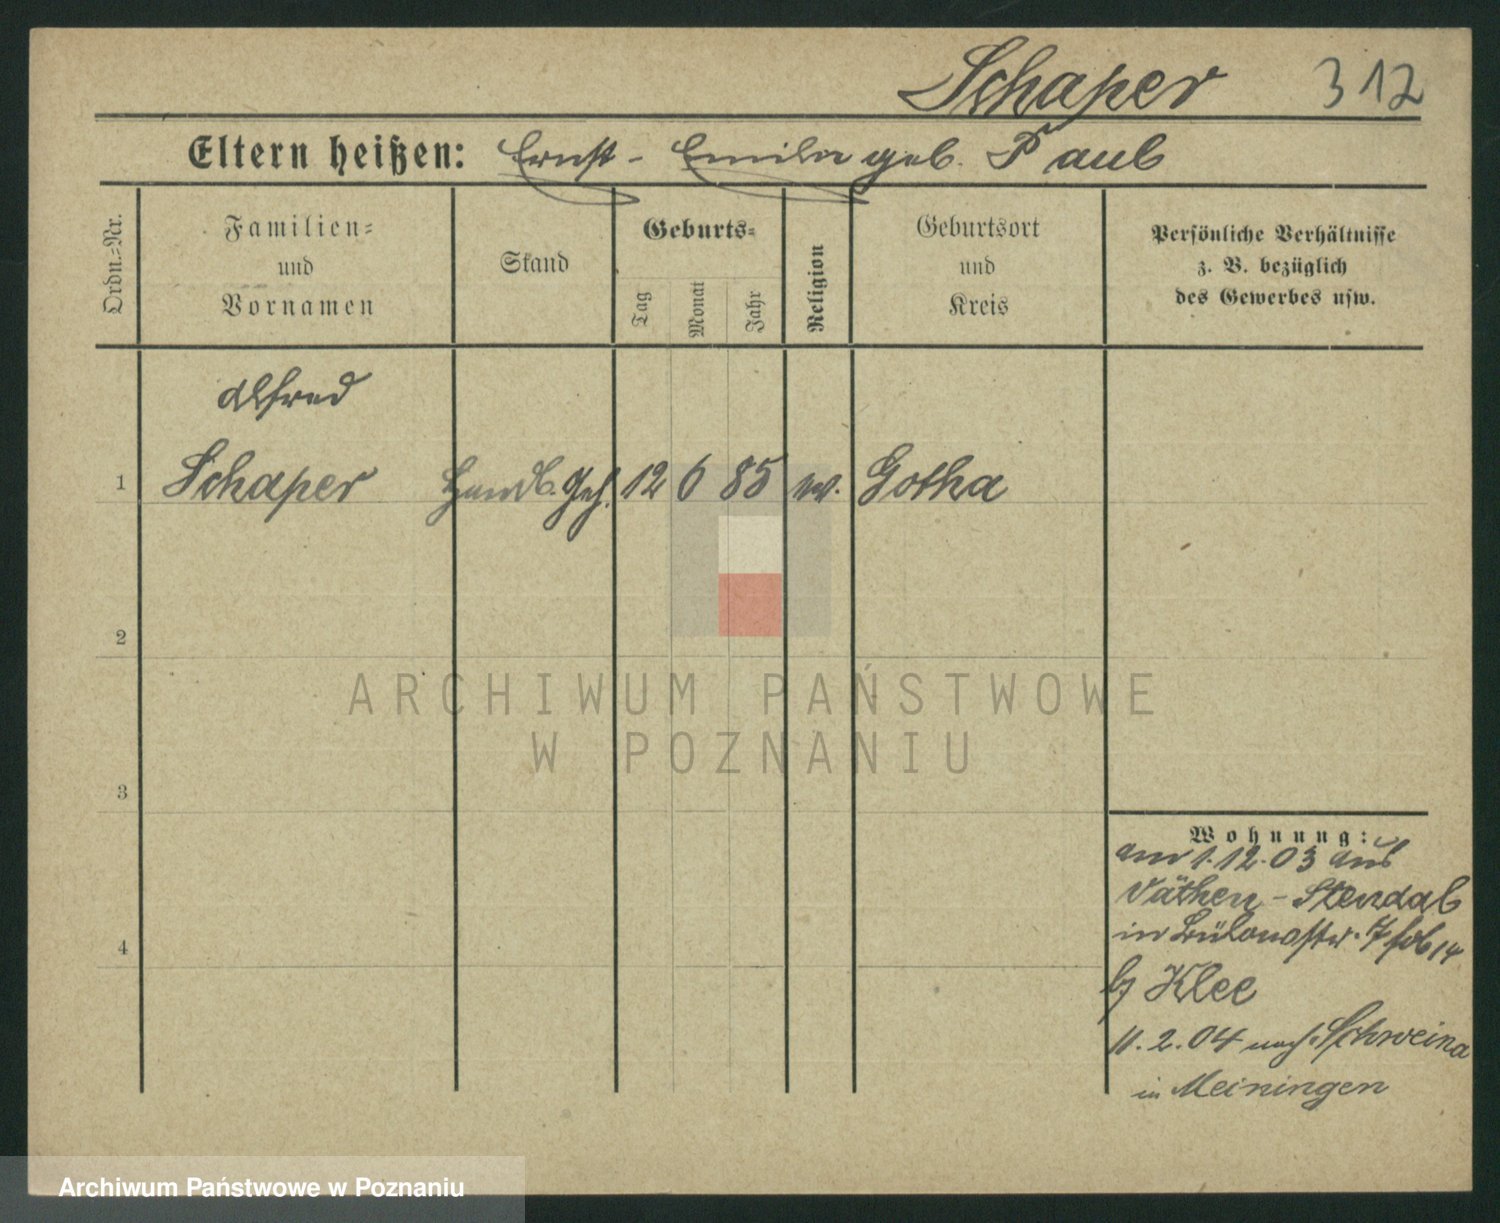 Schaper 312
Eltern heißen: Ernst - Emilie geb. Paul
Ordn.=Nr.
Familien=
und
Vornamen
Stand
Geburts=
Tag
Monat
Jahr
Religion
Geburtsort
und
Kreis
Persönliche Verhältnisse
z. B. bezüglich
des Gewerbes usw.
Alfred
1 Schaper Handl. Geh. 12 6 85 ev. Gotha
2
3
4
Wohnung:
am 1.12.03 aus
Väthen - Stendal
in Bülowstr. 7
b/ Klee
11.2.04 nach Schweina
in Meiningen
ARCHIWUM PAŃSTWOWE
W POZNANIU
Archiwum Państwowe w Poznaniu